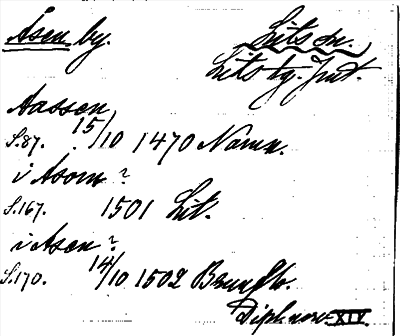 Åsen by.
Lits sn.
Lits tg. Jmt.
Aassen
S.87. 15/10 1470 Namn.
i Åsom?
S.167. 1501 Lit.
i Åsen?
S.170. 14/10 1502 Brunflo.
Dipl. norv. XIV.